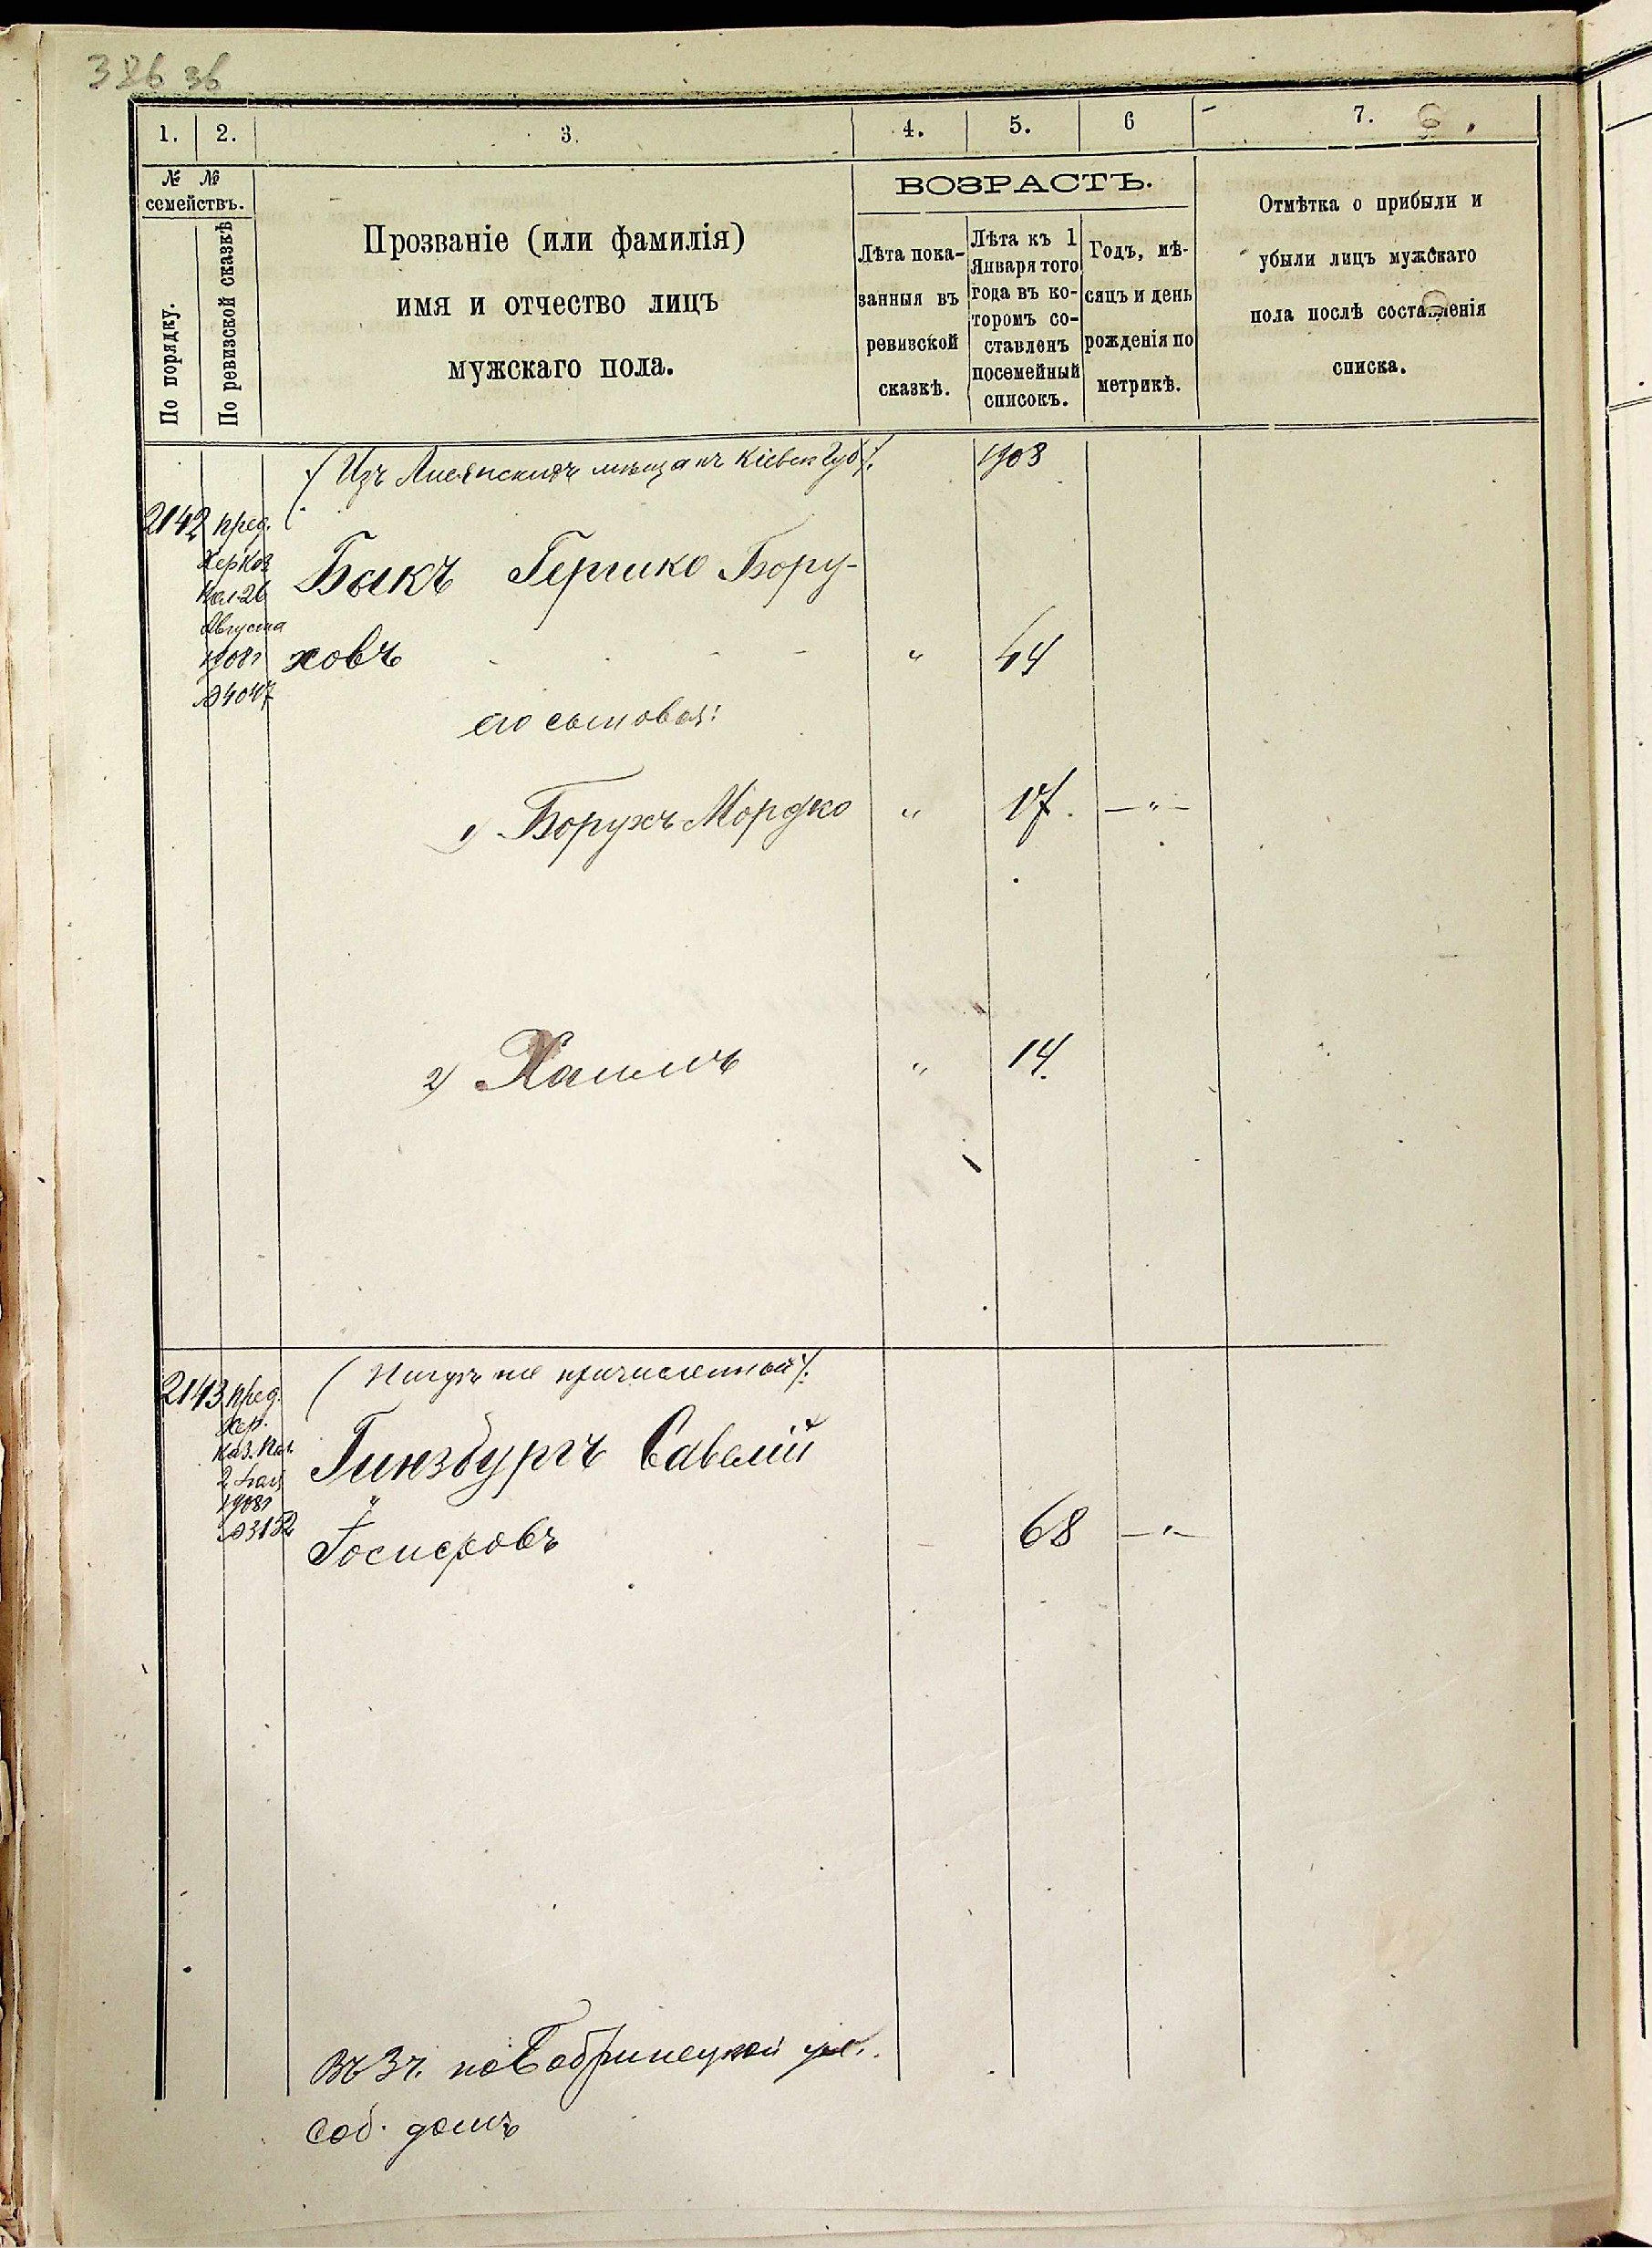 386 36
1. 2. 3. 4. 5. 6 7.
№ №
семействъ.
По порядку.
По ревизской сказкѣ
Прозваніе (или фамилія)
имя и отчество лицъ
мужскаго пола.
ВОЗРАСТЪ.
Лѣта пока-
занныя въ
ревизской
сказкѣ.
Лѣта къ 1
Января того
года въ ко-
торомъ со-
ставленъ
посемейный
списокъ.
Годъ, мѣ-
сяцъ и день
рожденія по
метрикѣ.
Отмѣтка о прибыли и
убыли лицъ мужскаго
пола послѣ составленія
списка.
(Изъ Лисянскихъ мѣщанъ Кіевск Губ/. 1908
2142 пред.
Хер Каз
Пал. 26
Августа
1908г
№4047
Быкъ Гершко Бору-
ховъ " 44
его сыновья:
1) Борухъ Мордко " 17. — " —
2) Хаимъ " 14.
2143 пред.
Хер.
Каз. Пал
2
1908г
№3152
(Нигдѣ не причисленный/.
Гинзбургъ Савелій
Іосифовъ 68 — " —
Въ 3ч. по Бобринецкой ул.
Соб. домъ